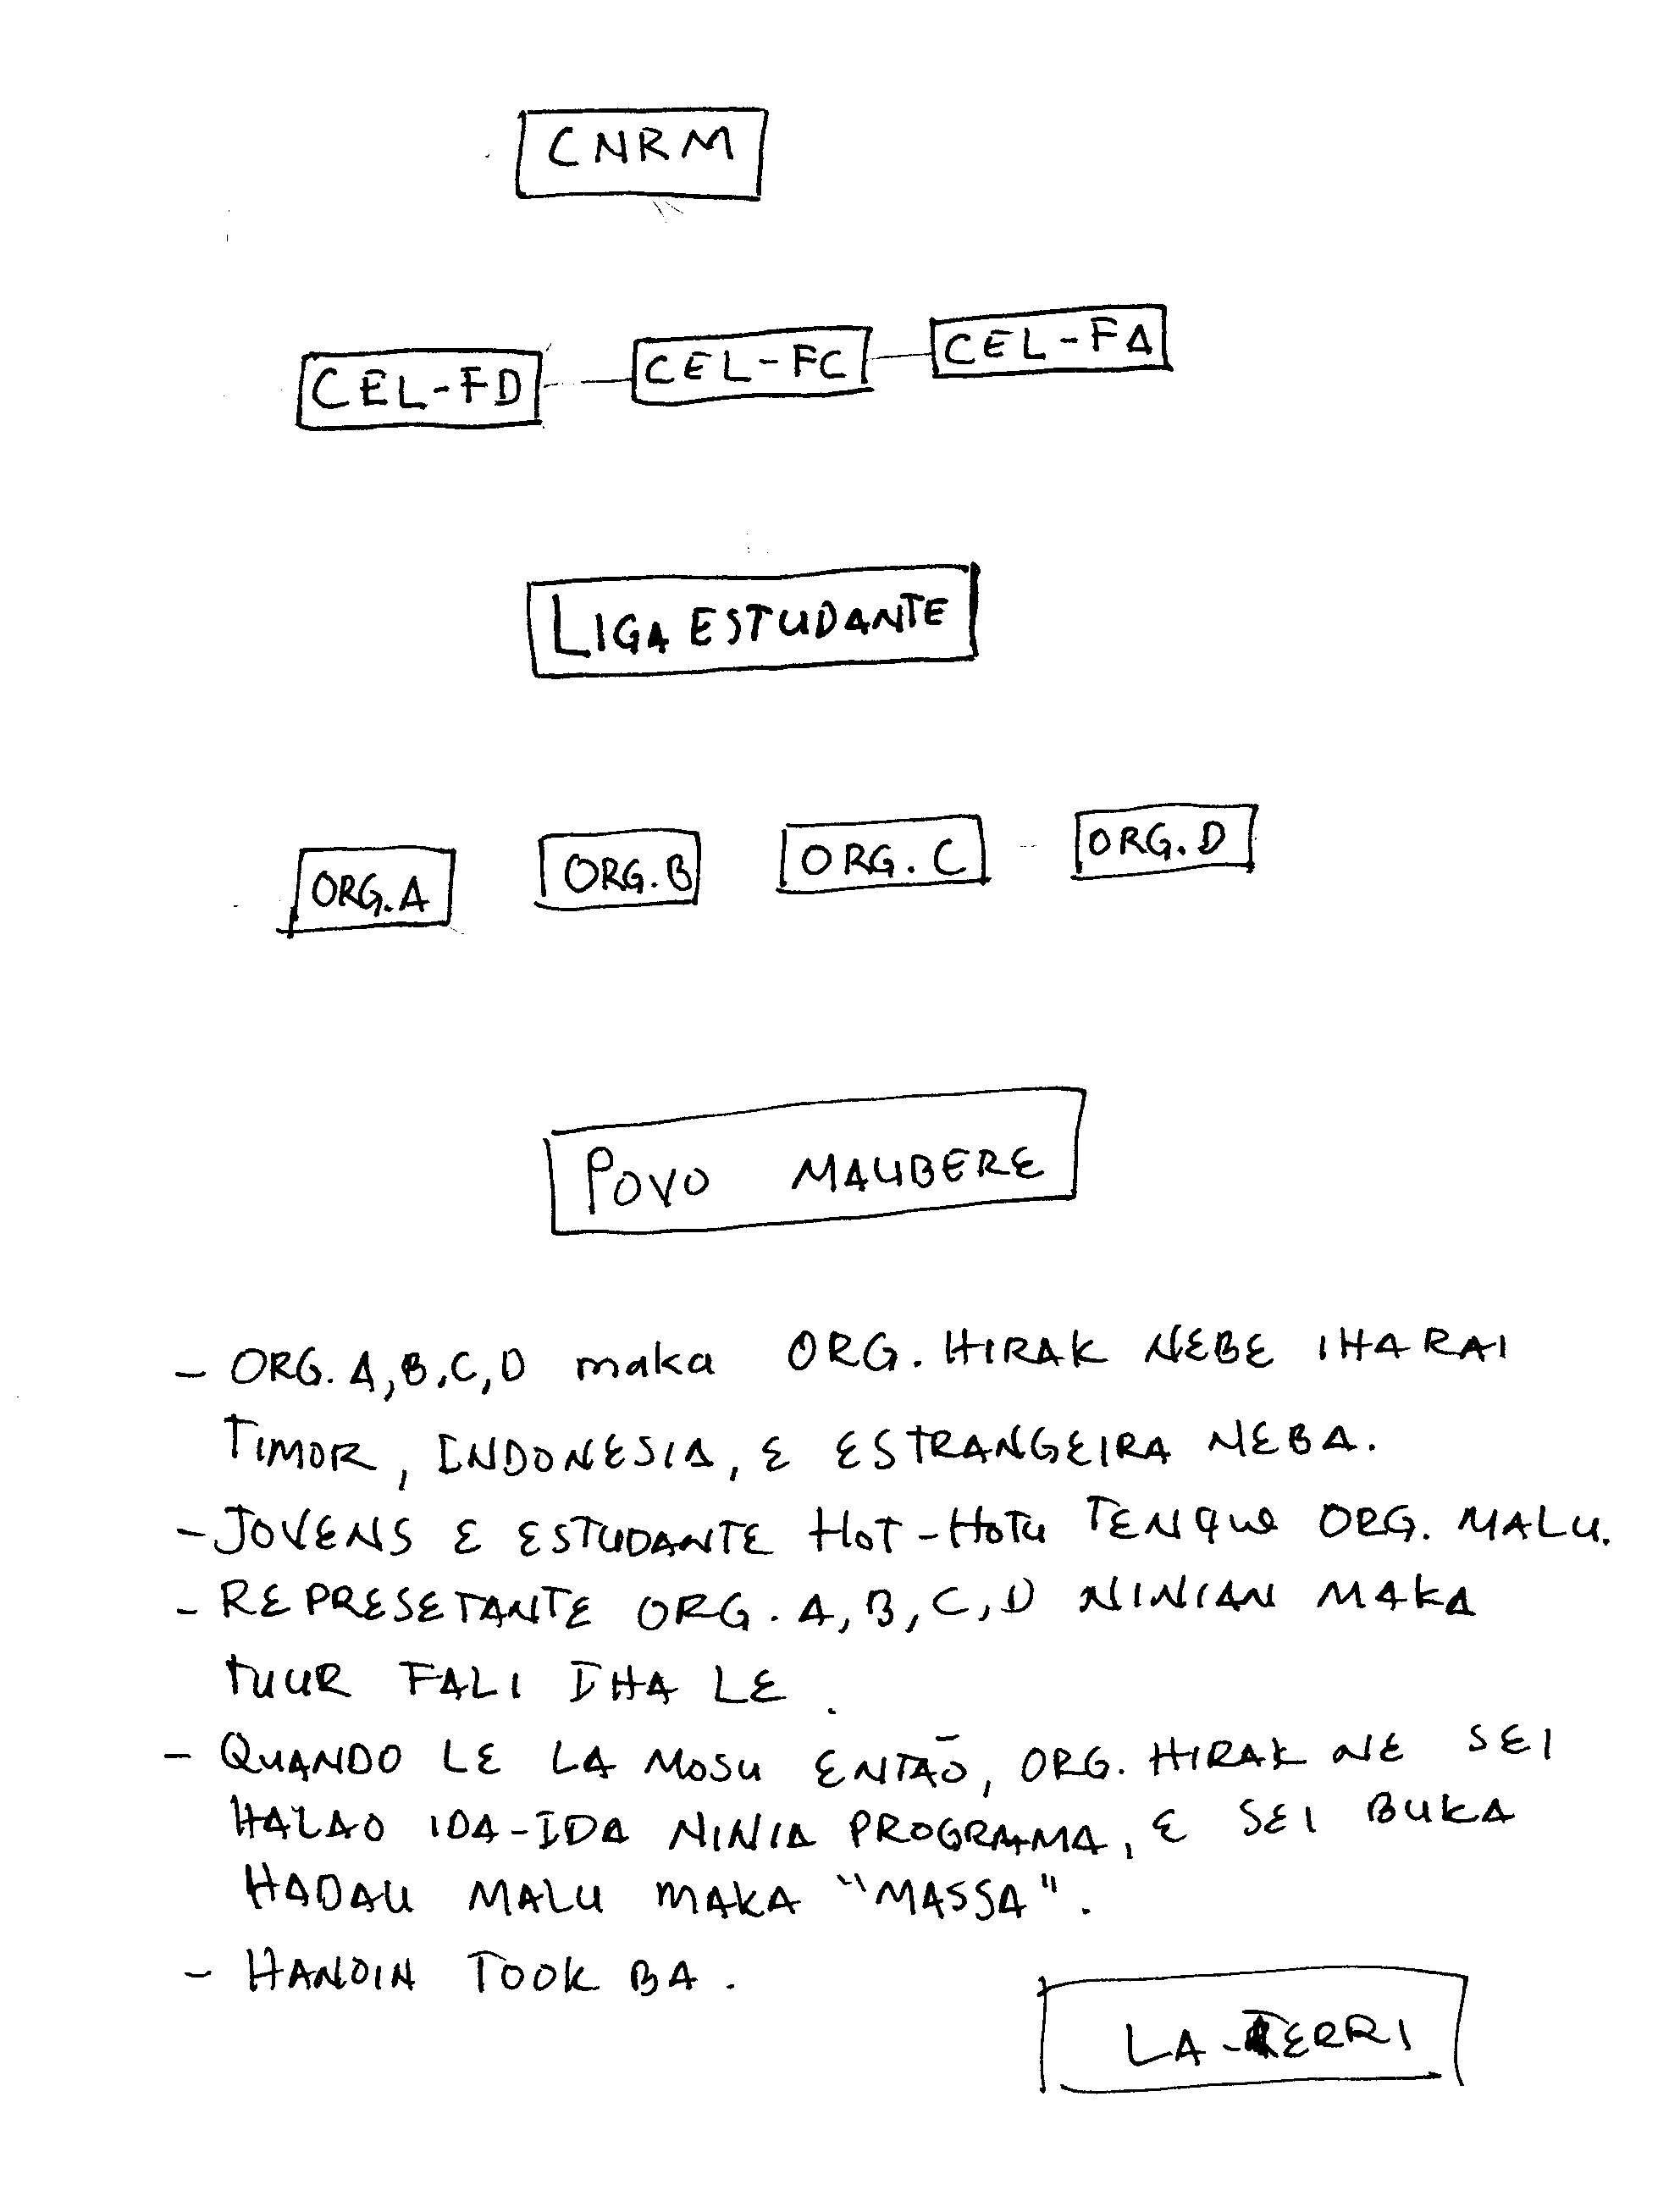 CNRM
CEL-FD CEL-FC CEL-FA
LIGA ESTUDANTE
ORG. A ORG. B ORG. C ORG. D
POVO MAUBERE
- ORG. A, B, C, D maka ORG. HIRAK NEBE IHA RAI
TIMOR, INDONESIA, E ESTRANGEIRA NEBA.
- JOVENS E ESTUDANTE HOT-HOTU TENQUE ORG. MALU.
- REPRESETANTE ORG. A, B, C, D NINIAN MAKA
TUUR FALI IHA LE.
- QUANDO LE LA MOSU ENTÃO, ORG. HIRAK NE SEI
HALAO IDA-IDA NINIA PROGRAMA, E SEI BUKA
HADAU MALU MAKA "MASSA".
- HANOIN TOOK BA.
LA-TERRI